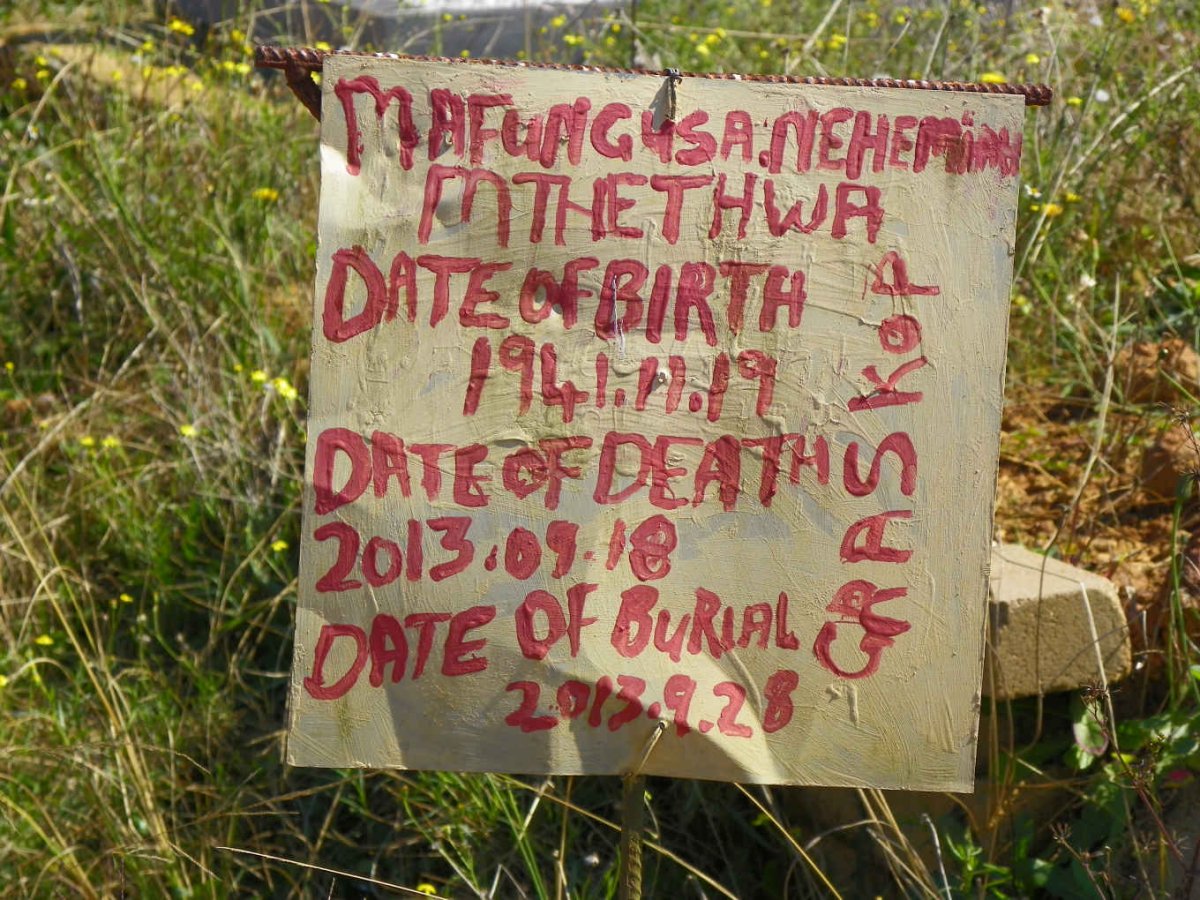 MAFUNGUSA.NEHEMIAH
MTHETHWA
DATE OF BIRTH
1941.11.19
DATE OF DEATH
2013.09.18
DATE OF BURIAL
2013.9.28
GRASKOP